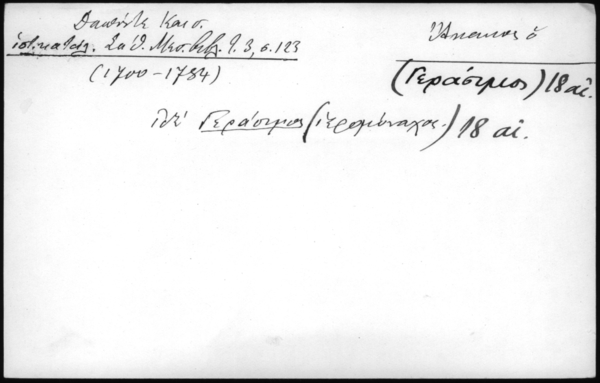 Δαπόντε Καισ.
ἱστ. καταλ. Σάθ. Μεσ. βιβλ. τ. 3, σ. 123
(1700-1784)
Ἄκακιος ὁ
(Γεράσιμος) 18 αἰ.
ἰδὲ Γεράσιμος (ἱερομόναχος.) 18 αἰ.